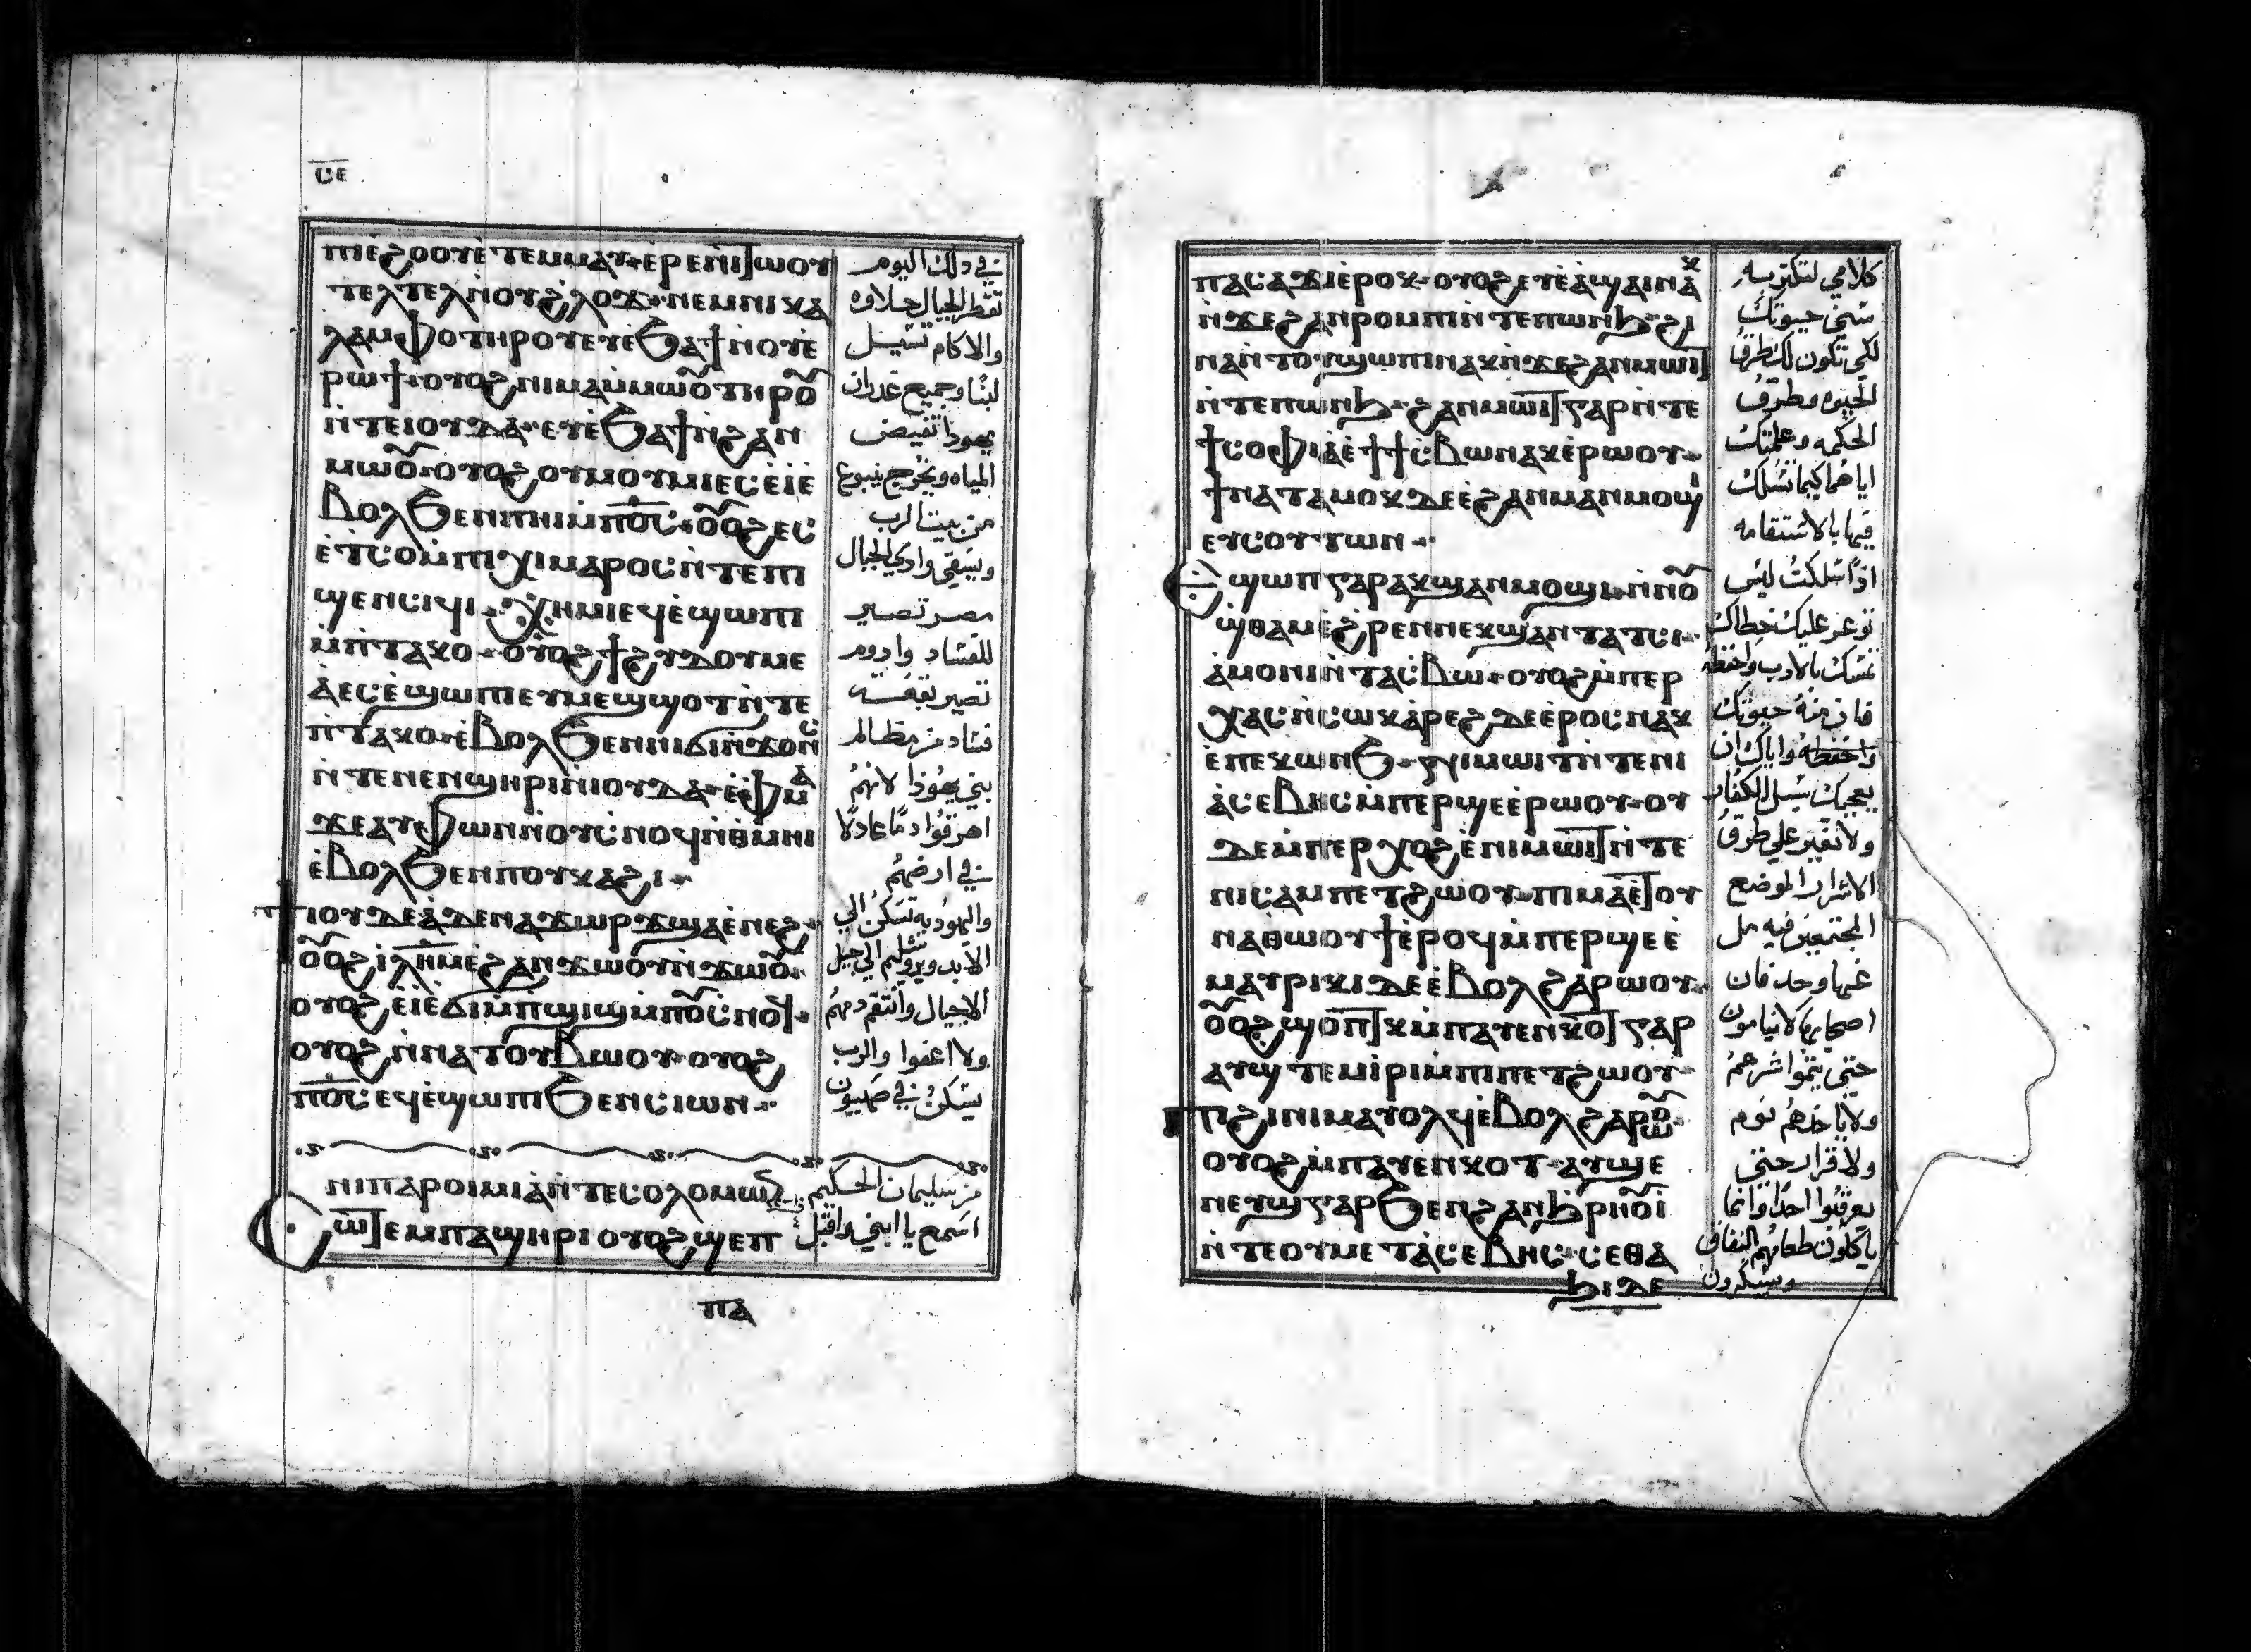 ⲥⲉ
ⲡⲓⲉ̀ϩⲟⲟⲩⲉ̀ⲧⲉⲙⲙⲁⲩ ⲉ̀ⲣⲉⲛⲓⲧⲱⲟⲩ
ⲧⲉⲗⲧⲉⲗⲛ̀ⲟⲩϩ̀ⲗⲟϫ ⲛⲉⲙⲛⲓⲕⲁ
ⲗⲁⲙⲫⲟⲧⲏⲣⲟⲩⲉⲩⲉ̀ϧⲁϯⲛ̀ⲟⲩⲉ̀
ⲣⲱϯ ⲟⲩⲟϩ ⲛⲓⲙⲁⲙ̀ⲙⲱⲟ̃ⲧⲏⲣⲟ̃
ⲛ̀ⲧⲉⲓⲟⲩⲇⲁ ⲉⲩⲉ̀ϧⲁϯⲛ̀ϩⲁⲛ
ⲙⲱⲟ̃ ⲟⲩⲟϩ ⲟⲩⲙⲟⲩⲙⲓⲉⲥⲉ̀ⲓ̀ⲉ̀
ⲃⲟⲗϧⲉⲛⲡⲏⲓⲙ̀ⲡⲟ̅ⲥ̅ ⲟ̃ⲟϩ ⲉⲥ
ⲉ̀ⲧⲥⲟⲙ̀ⲡⲓⲭⲓⲙⲁⲣⲟⲥⲛ̀ⲧⲉⲡⲓ
ϣⲉⲛⲥⲓϥⲓ ⲭⲏⲙⲓⲉϥⲉ̀ϣⲱⲡⲓ
ⲙ̀ⲡ̀ⲧⲁⲕⲟ ⲟⲩⲟϩ ϯϩⲩⲇⲟⲩⲙⲉ
ⲁ̀ⲉⲥⲉ̀ϣⲱⲡⲓⲉⲩⲙⲉϣϣⲟⲧⲛ̀ⲧⲉ
ⲡ̀ⲧⲁⲕⲟ ⲉ̀ⲃⲟⲗϧⲉⲛⲛⲓϭⲓⲛ̀ϫⲟⲛⲥ̀
ⲛ̀ⲧⲉⲛⲉⲛϣⲏⲣⲓⲛ̀ⲓⲟⲩⲇⲁ ⲉ̀ⲫⲙⲁ
ϫⲉⲁⲩⲫⲱⲛⲛ̀ⲟⲩⲥ̀ⲛⲟϥⲛ̀ⲑⲙⲏⲓ
ⲉ̀ⲃⲟⲗϧⲉⲛⲡⲟⲩⲕⲁϩⲓ
ϯⲓⲟⲩⲇⲉⲁ̀ⲇⲉⲛⲁϫⲱⲣϫϣⲁⲉ̀ⲛⲉϩ
ⲟ̃ⲟϩ ⲓ̅ⲗ̅ⲏ̅ⲙ̅ⲉ̀ϩⲁⲛϫⲱⲟⲩⲛ̀ϫⲱⲟ̃
ⲟⲩⲟϩ ⲉⲓⲉ̀ϭⲓⲙ̀ⲡϣⲓϣⲙ̀ⲡⲟⲩⲥ̀ⲛⲟϥ
ⲟⲩⲟϩ ⲛ̀ⲛⲁⲧⲟⲩⲃⲱⲟⲩ ⲟⲩⲟϩ
ⲡⲟ̅ⲥ̅ⲉϥⲉ̀ϣⲱⲡⲓϧⲉⲛⲥⲓⲱⲛ
ⲛⲓⲡⲁⲣⲟⲓⲙⲓⲁ̀ⲛ̀ⲧⲉⲥⲟⲗⲟⲙⲱⲛ
ⲥⲱⲧⲉⲙⲡⲁϣⲏⲣⲓⲟⲩⲟϩ ϣⲉⲡ
ⲡⲁ
في دلك اليوم
تقطر الجبال حلاوه
والاكام تسيل
لبنًا وجميع غدران
يهودا تفيض
المياه ويخرج ينبوع
من بيت الرب
ويسقي وادي الجبال
مصر تصير
للفساد وادوم
تصير بقفسه
فساد من مظالم
بني يهودا لانهم
اهرقوا دمًا عادلًا
في ارضهم
واليهوديه تسكن الي
الابد ويروشليم الي جيل
الاجيال وانتقم دمهم
ولا اعفوا والرب
يسكن في صهيون
من سليمان الحكيم
اسمع يا ابني واقبل
ⲡⲁⲥⲁϫⲓⲉ̀ⲣⲟⲕ ⲟⲩⲟϩ ⲉⲩⲉ̀ⲁ̀ϣⲁⲓⲛⲁⲕ
ⲛ̀ϫⲉϩⲁⲛⲣⲟⲙⲡⲓⲛ̀ⲧⲉⲡⲱⲛϧ ϩⲓ
ⲛⲁⲛ̀ⲧⲟⲩϣⲱⲡⲓⲛⲁⲕⲛ̀ϫⲉϩⲁⲛⲙⲱⲓⲧ
ⲛ̀ⲧⲉⲡⲱⲛϧ ϩⲁⲛⲙⲱⲓⲧⲅⲁⲣⲛ̀ⲧⲉ
ϯⲥⲟⲫⲓⲁ̀ⲉ̀ϯϯⲥ̀ⲃⲱⲛⲁⲕⲉ̀ⲣⲱⲟⲩ
ϯⲛⲁⲧⲁⲙⲟⲕⲇⲉⲉ̀ϩⲁⲛⲙⲁⲛⲙⲟϣⲓ
ⲉⲩⲥⲟⲩⲧⲱⲛ
ⲉϣⲱⲡⲅⲁⲣⲁⲕϣⲁⲛⲙⲟϣⲓ ⲛ̀ⲛⲟ̃
ϣ̀ⲑⲁⲙⲉ̀ϩ̀ⲣⲉⲛⲛⲉⲕϣⲁⲛⲧⲁⲧⲥⲓ
ⲁ̀ⲙⲟⲛⲓⲛ̀ⲧⲁⲥ̀ⲃⲱ ⲟⲩⲟϩ ⲙ̀ⲡⲉⲣ
ⲭⲁⲥⲛ̀ⲥⲱⲕⲁ̀ⲣⲉϩ ⲇⲉⲉ̀ⲣⲟⲥⲛⲁⲕ
ⲉ̀ⲡⲉⲕⲱⲛϧ ϥⲓⲙⲱⲓⲧⲛ̀ⲧⲉⲛⲓ
ⲁ̀ⲥⲉⲃⲏⲥⲙ̀ⲡⲉⲣϣⲉⲉ̀ⲣⲱⲟⲩ ⲟⲩ
ⲇⲉⲙ̀ⲡⲉⲣⲭⲟϩ ⲉ̀ⲛⲓⲙⲱⲓⲧⲛ̀ⲧⲉ
ⲛⲓⲥⲁⲙⲡⲉⲧϩⲱⲟⲩ ⲡⲓⲙⲁⲉ̀ⲧⲟⲩ
ⲛⲁⲑⲱⲟⲩϯⲉ̀ⲣⲟϥⲙ̀ⲡⲉⲣϣⲉⲉ̀
ⲙⲁⲩⲣⲓⲕⲓⲇⲉⲉ̀ⲃⲟⲗϩⲁⲣⲱⲟⲩ
ⲟ̃ⲟϩ ϣⲟⲡⲧⲕⲙ̀ⲡⲁⲩⲉⲛⲕⲟⲧⲅⲁⲣ
ⲁⲩϣⲧⲉⲙⲓ̀ⲣⲓⲙ̀ⲡⲓⲡⲉⲧϩⲱⲟⲩ
ⲡϩⲓⲛⲓⲙⲁⲩⲟⲗϥⲉ̀ⲃⲟⲗϩⲁⲣⲱⲟ̃
ⲟⲩⲟϩ ⲙ̀ⲡⲁⲩⲉⲛⲕⲟⲧ ⲁⲩϣⲉ
ⲛⲉⲩϣⲅⲁⲣϧⲉⲛϩⲁⲛϧ̀ⲣⲏⲟⲩⲓ̀
ⲛ̀ⲧⲉⲟⲩⲙⲉⲧⲁ̀ⲥⲉⲃⲏⲥ ⲥⲉⲑⲁ
ϧⲓⲇⲉ
كلامي لتكتر به
سني حيوتك
لكي تكون لك طرق
الحيوه وطرق
الحكمه وعلمتك
اياهما كيما تسلك
فيها بالاستقامه
اذا سلكت ليس
توعر عليك خطاك
تمسك بالادب واحفظه
فان منه حيوتك
واحفظه واياك ان
يعجبك سبل الكفار
ولا تغير علي طرق
الاشرار الموضع
المجتمعين فيه مل
عنها وحد فان
اصحابها لا يناموا
حتي يتموا شرهم
ولا ياخدهم نوم
ولا قرار حتي
يعرقبوا احدًا وانما
ياكلون طعامهم النفاق
ويسكرون